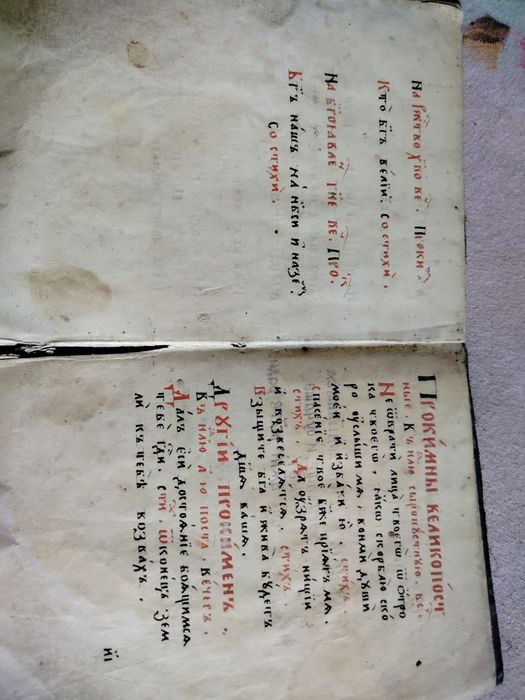 На рж҃тво хв҃о ве҃. Проки҇
Кто̀ бг҃ъ ве́лїй. со стихѝ.
На бг҃оꙗвле́ гн҃е ве҃. про.
Бг҃ъ на́шъ на нб҃си ѝ на зе.
со стихѝ.
Проки́мны великопо́ст
ные. Въ нлю сыропꙋ́стнꙋю. ве.
Не ѿвратѝ лица̀ твоегѡ̀, ѿ ѻтро
ка твоегѡ̀, ꙗкѡ скорблю ско́
ро ᲂуслы́ши мѧ, вонмѝ дꙋшѝ
мое́й и избави ю̀. стихъ.
спасе́нїе твоѐ бж҃е прїѧтъ мѧ.
стихъ. Да ᲂу́зрѧтъ ни́щїи
и возвеселѧ́тсѧ. стихъ.
Взыщи́те бг҃а и жива̀ бꙋ́детъ
дш҃а ваша.
Дрꙋгі́й проки́менъ,
Въ нлю а҃ ю поста̀, ве́черъ,
Да́лъ есѝ достоѧ́нїе боѧщимсѧ
тебѐ гд҃и. сти, ѿ коне́цъ зем
лѝ къ тебѣ̀ возвахъ.
и҃і